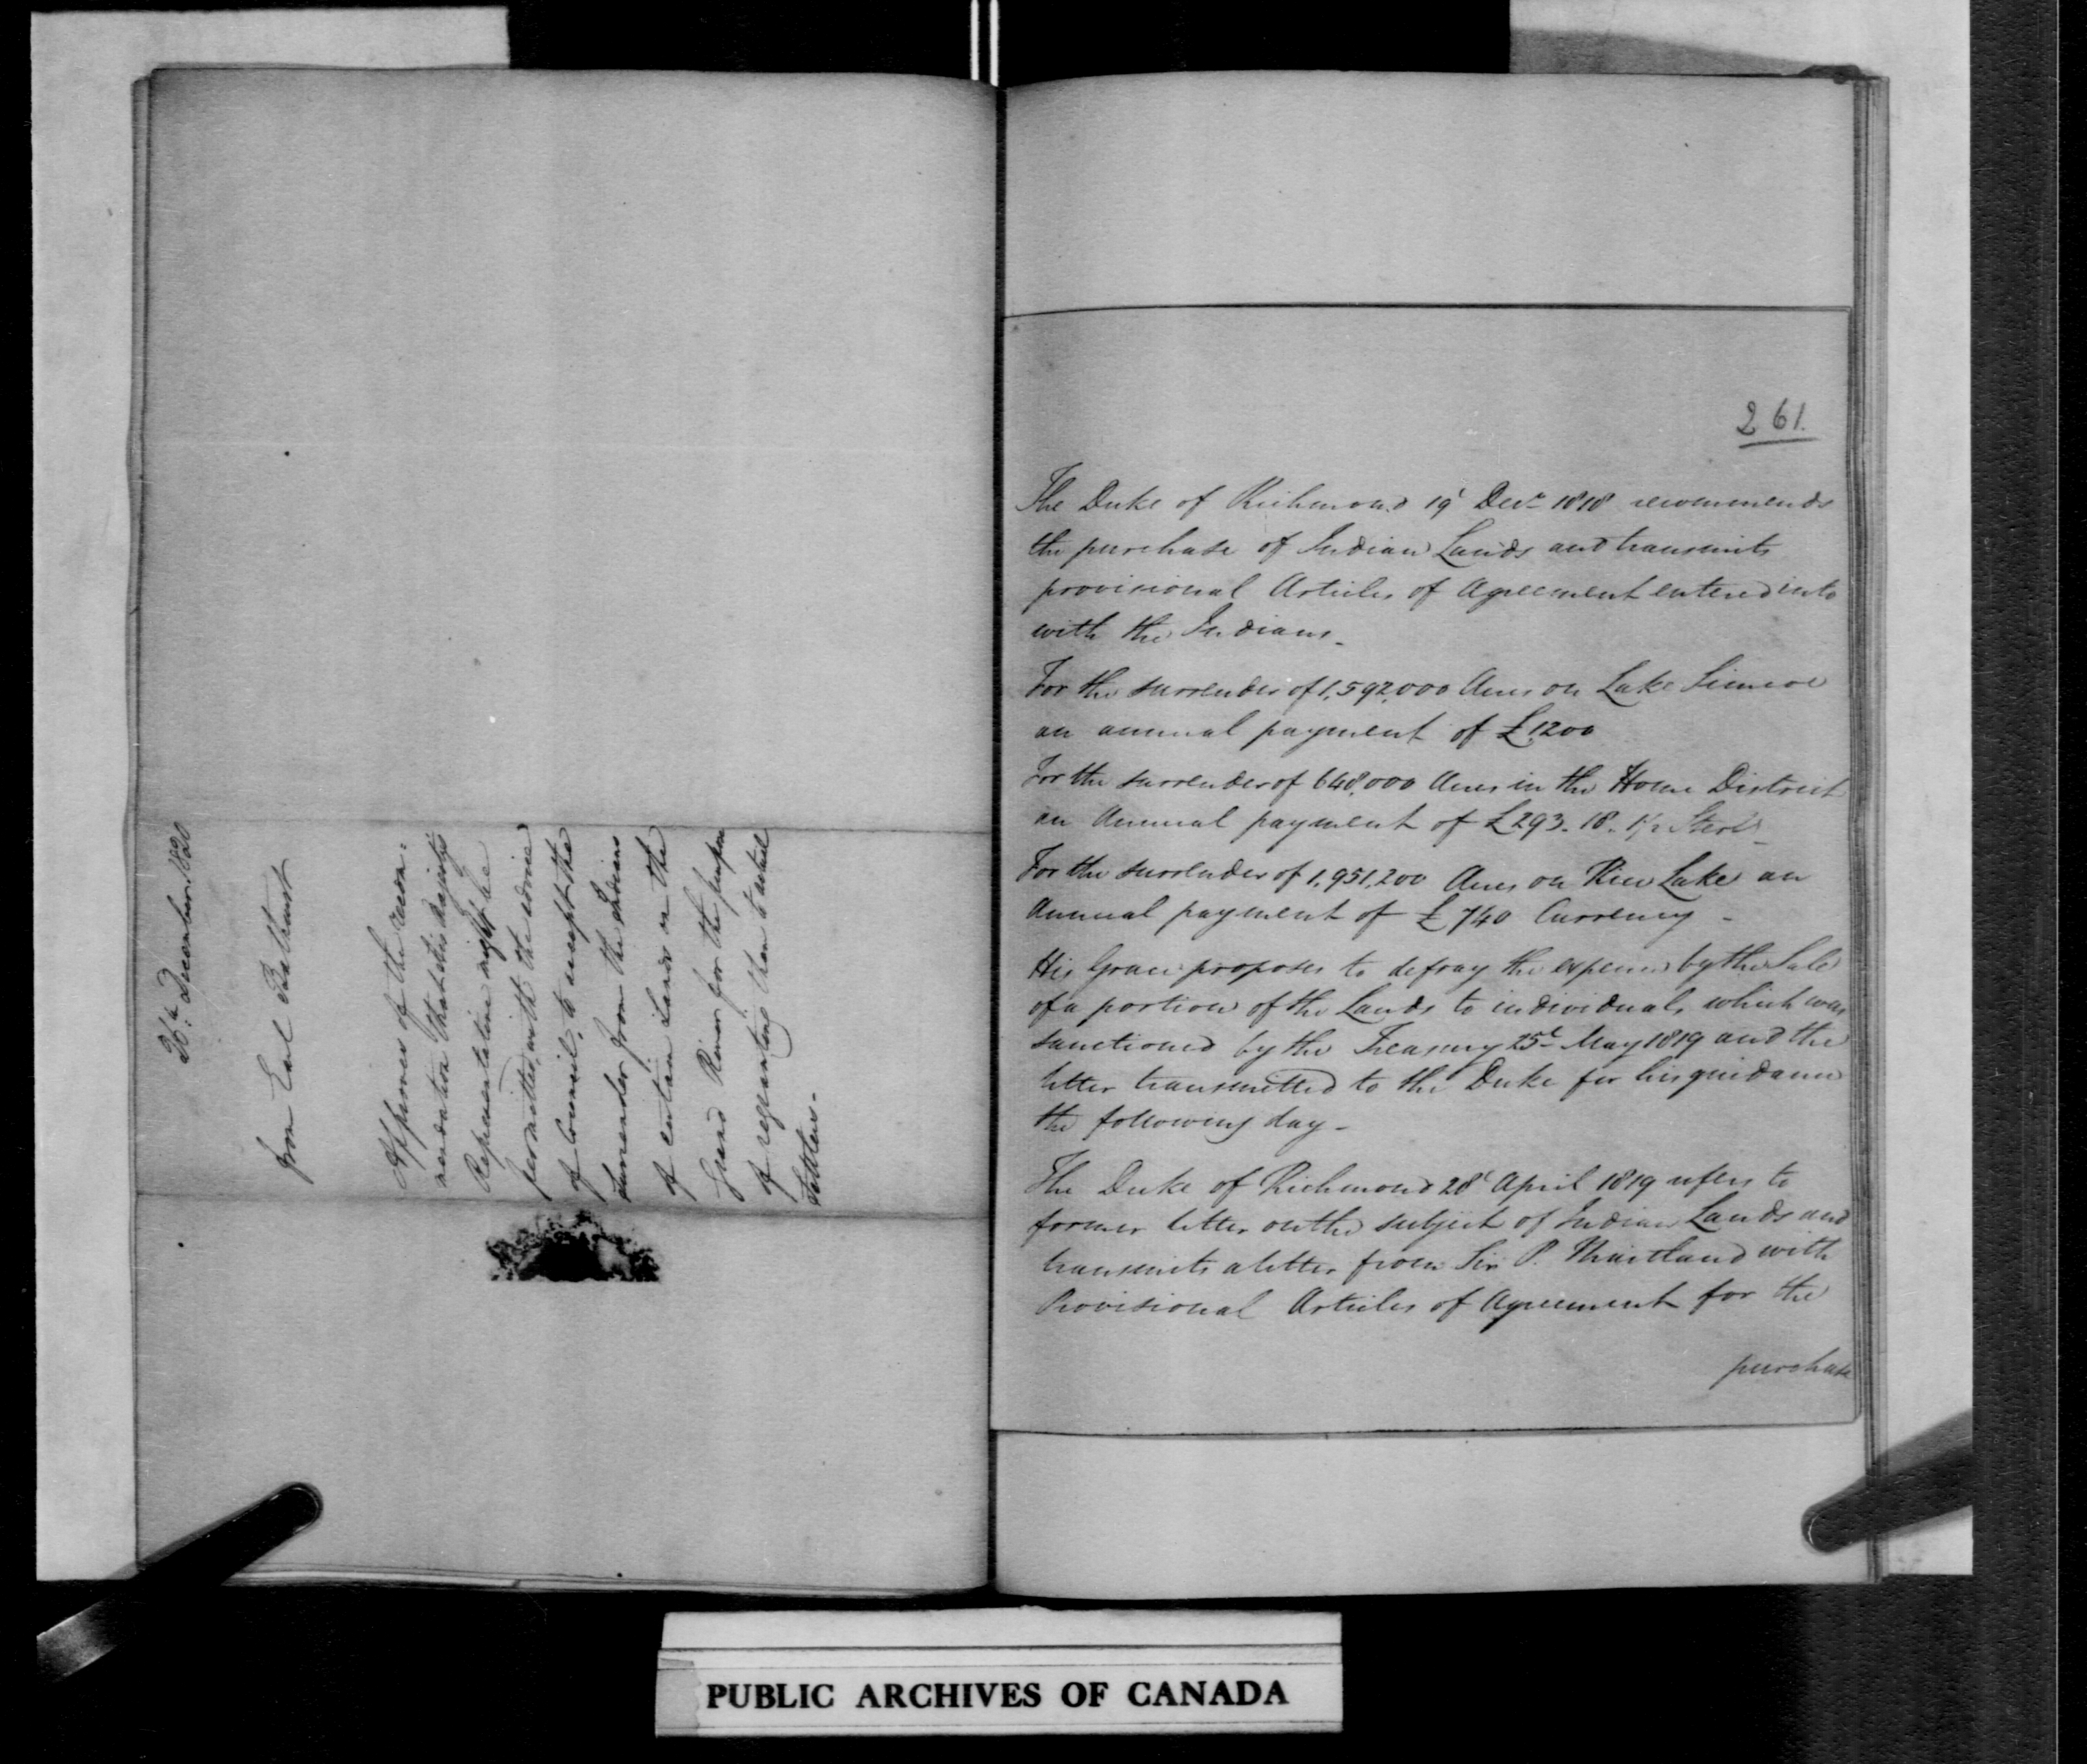 26th December 1820
from Earl Bathurst
Approves of the recom=
mendation that His Majesty's
Representative might be
permitted, with the advice
of Council, to accept the
surrender from the Indians
of certain Lands on the
Grand River for the purpose
of regranting them to actual
Settlers.
261.
The Duke of Richmond 19t Decr 1818 recommends
the purchase of Indian Lands and transmits
provisional Articles of Agreement entered into
with the Indians _
For the surrender of 1,592,000 Acres on Lake Simcoe
an annual payment of £1200
For the surrender of 648,000 Acres in the Home District
an Annual payment of £293. 18. 1½ Sterlg _
For the surrender of 1,951,200 Acres on Rice Lake an
Annual payment of £740 Currency _
His Grace proposes to defray the expense by the Sale
of a portion of the Lands to individuals which was
sanctioned by the Treasury 25t May 1819 and the
letter transmitted to the Duke for his guidance
the following day _
The Duke of Richmond 28t April 1819 refers to
former letter on the subject of Indian Lands and
transmits a letter from Sir P. Maitland with
Provisional Articles of Agreement for the
purchase
PUBLIC ARCHIVES OF CANADA